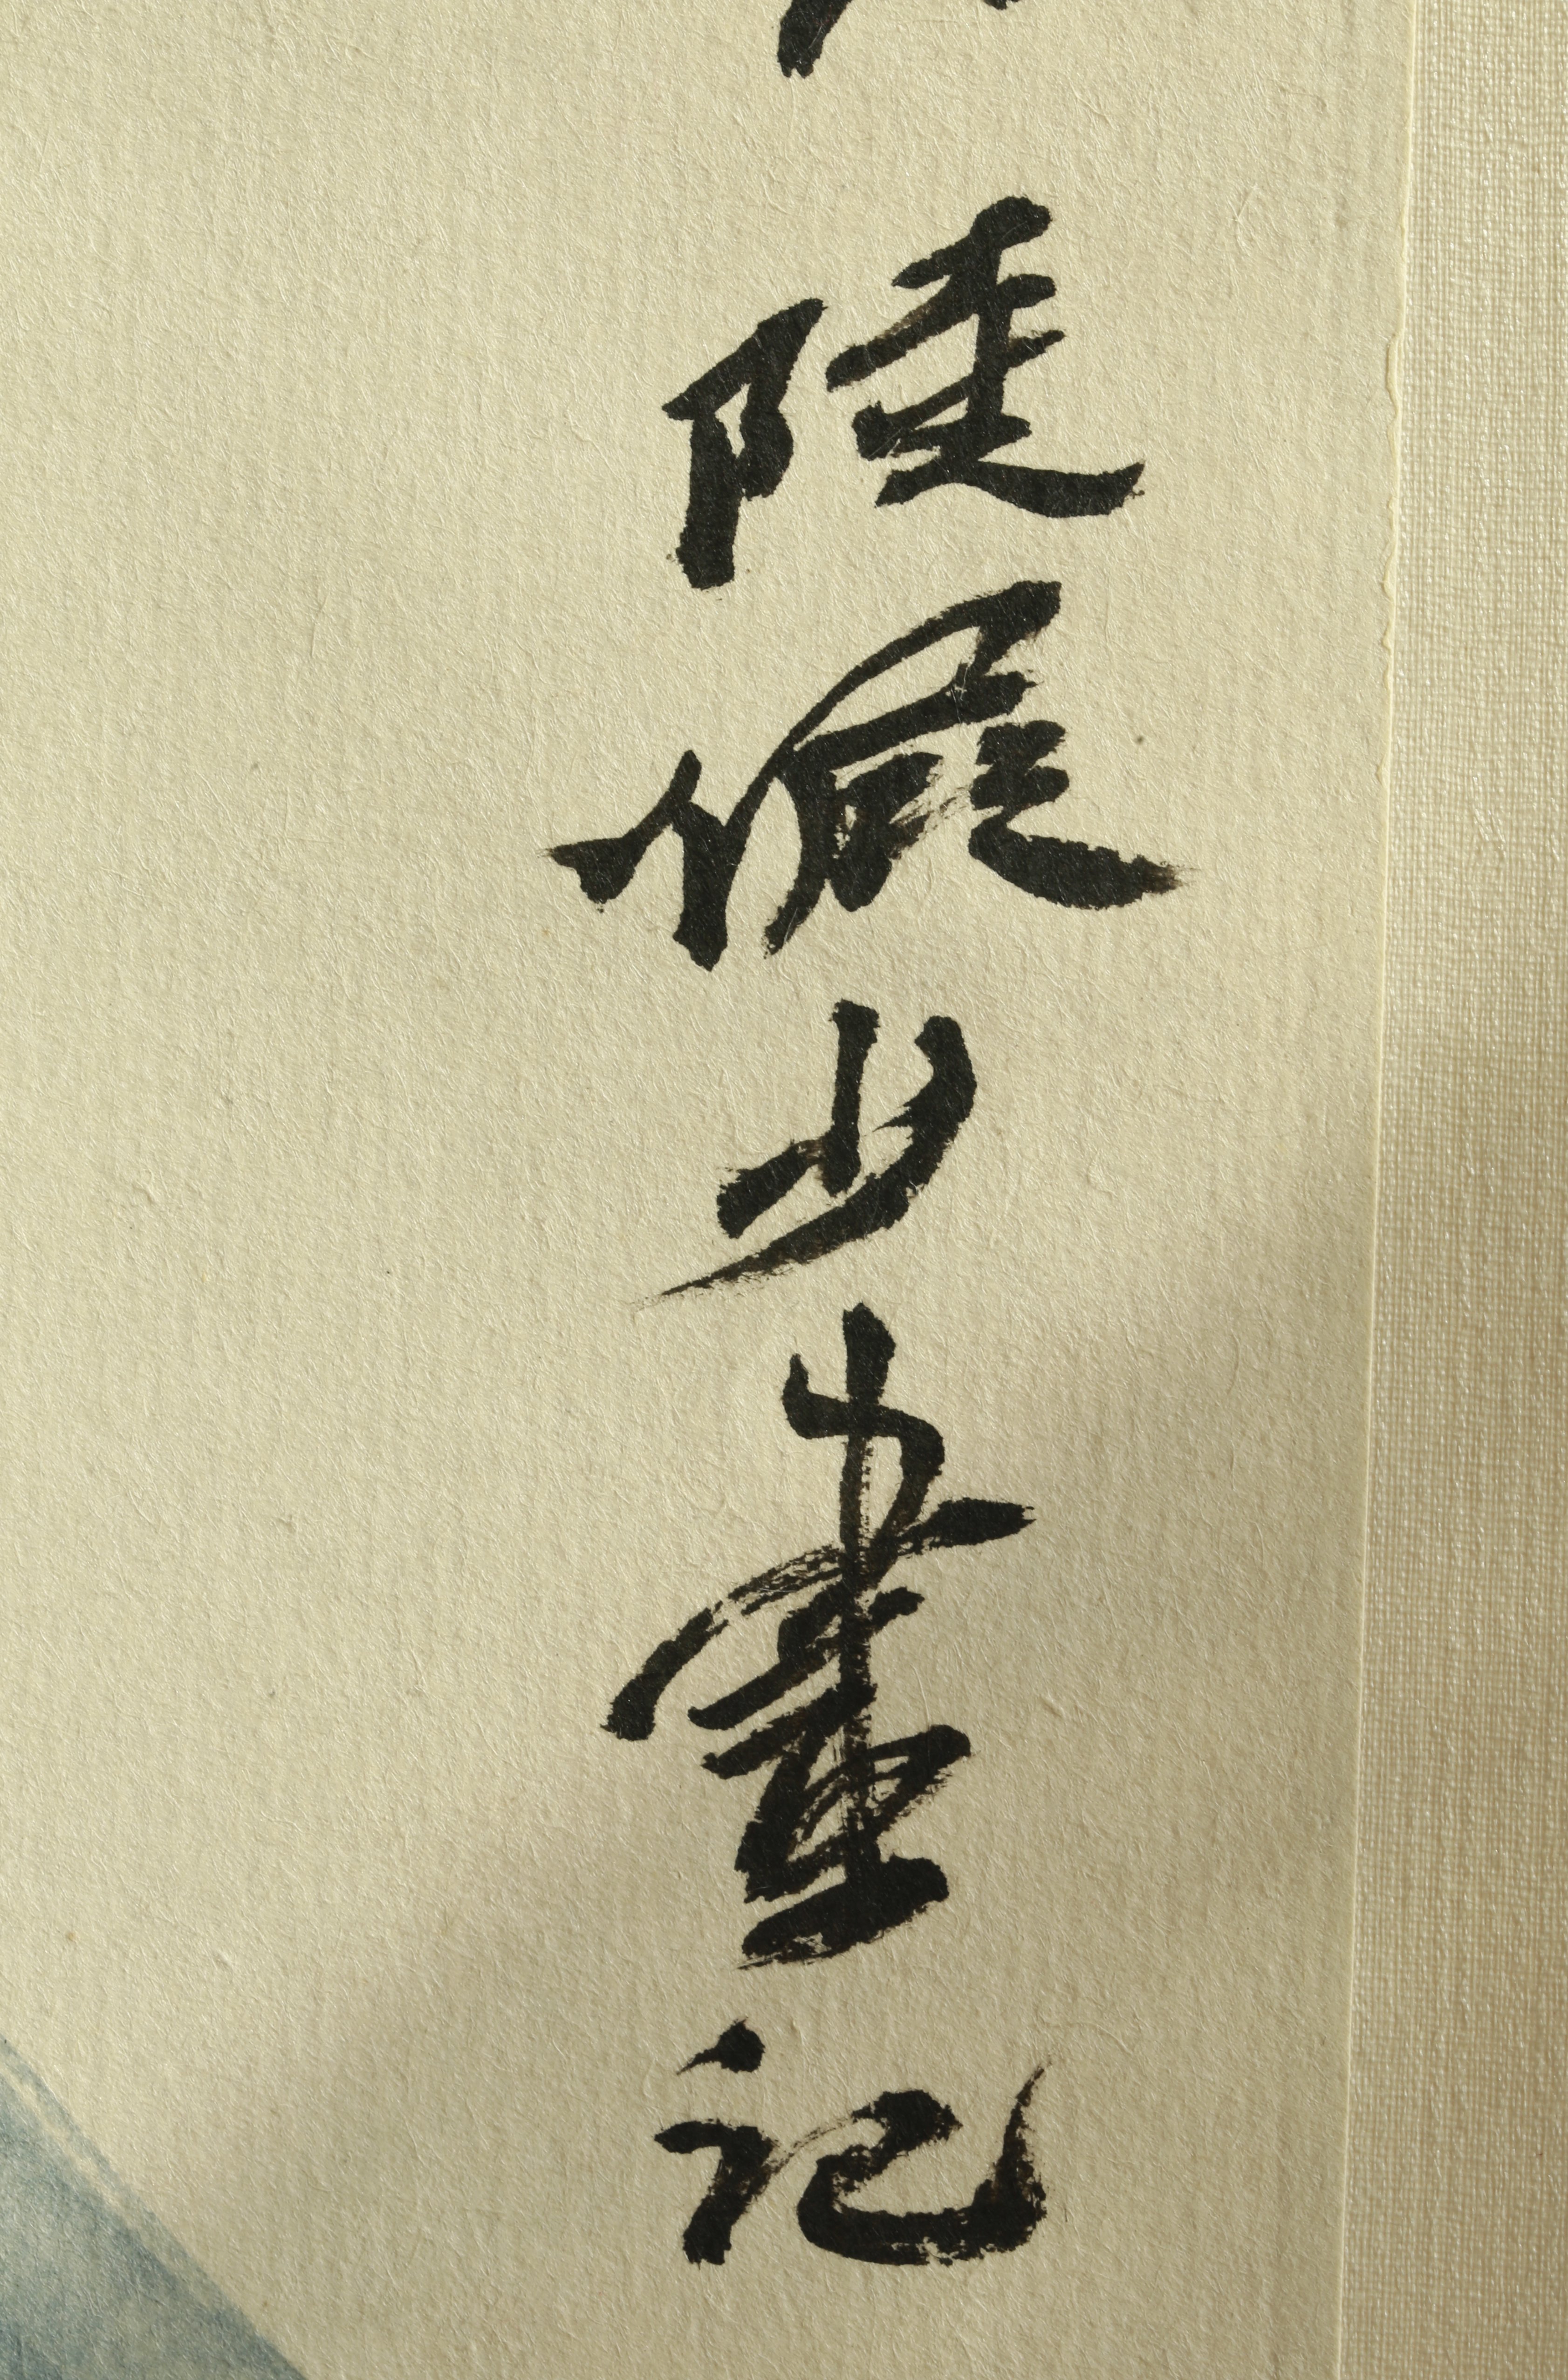 陸儼少畫記